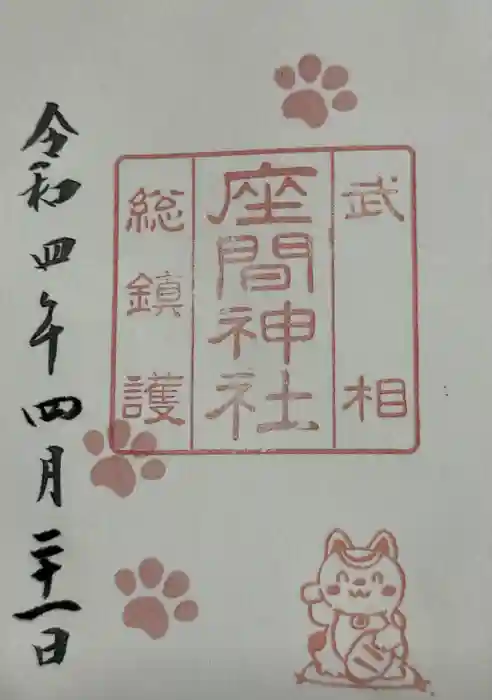 武相
座間神社
総鎮護
令和四年四月二十一日